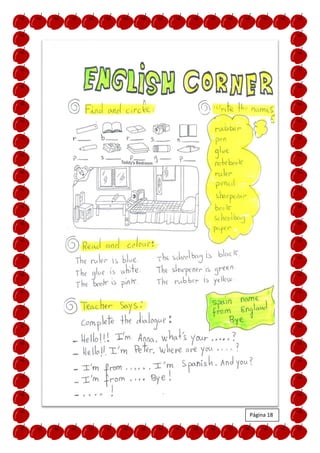 ENGLISH CORNER
Find and circle
Write the names
rubber
pen
glue
notebook
ruler
pencil
sharpener
book
schoolbag
paper
Today's Bedroom
Read and colour:
The ruler is blue. The schoolbag is black.
The glue is white. The sharpener is green.
The book is pink. The rubber is yellow.
Teacher says:
Complete the dialogue:
spain name
from England
Bye
- Hello!!! I'm Anna, what's your .....?
- Hello!!. I'm Peter. Where are you ....?
- I'm from ...... I'm Spanish. And you?
- I'm from .... Bye!
- .... !
Página 18